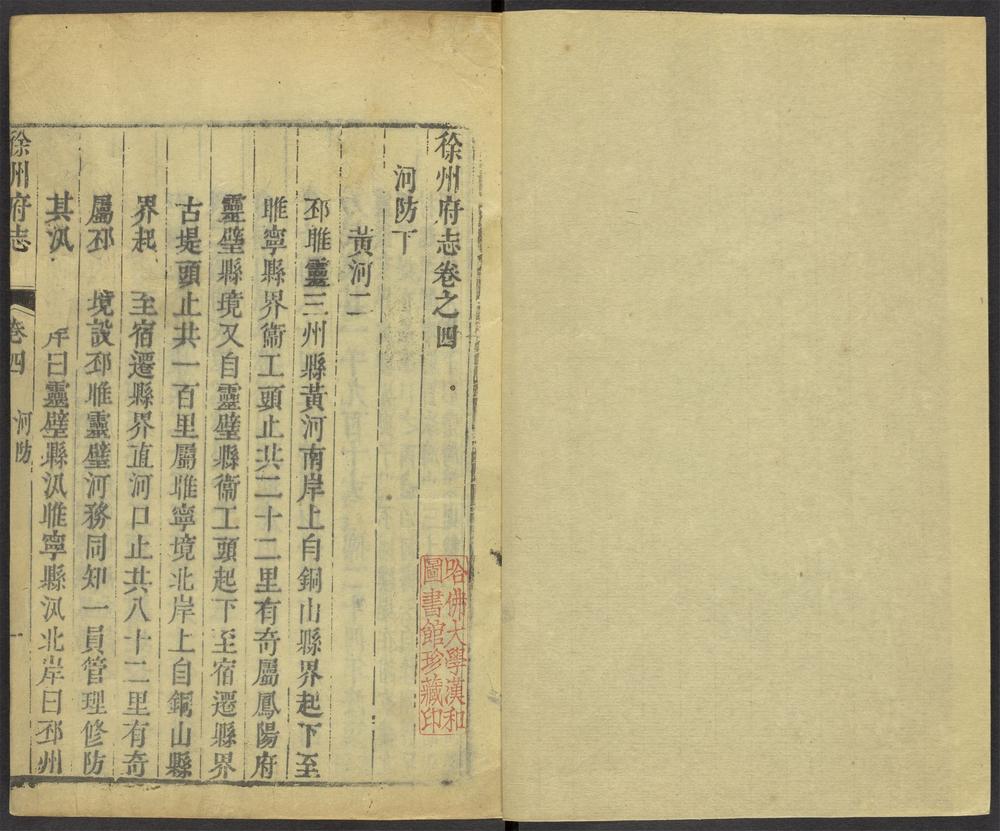 徐州府志卷之四
河防下
黃河二
邳睢靈三州縣黃河南岸上自銅山縣界起下至
睢寧縣界衞工頭止共二十二里有奇屬鳳陽府
靈璧縣境又自靈璧縣衞工頭起下至宿遷縣界
古堤頭止共一百里屬睢寧境北岸上自銅山縣
界起 至宿遷縣界直河口止共八十二里有奇
屬邳 境設邳睢靈璧河務同知一員管理修防
其汛 岸曰靈璧縣汛睢寧縣汛北岸曰邳州
徐州府志 卷四 河防 一
哈佛大學漢和
圖書館珍藏印